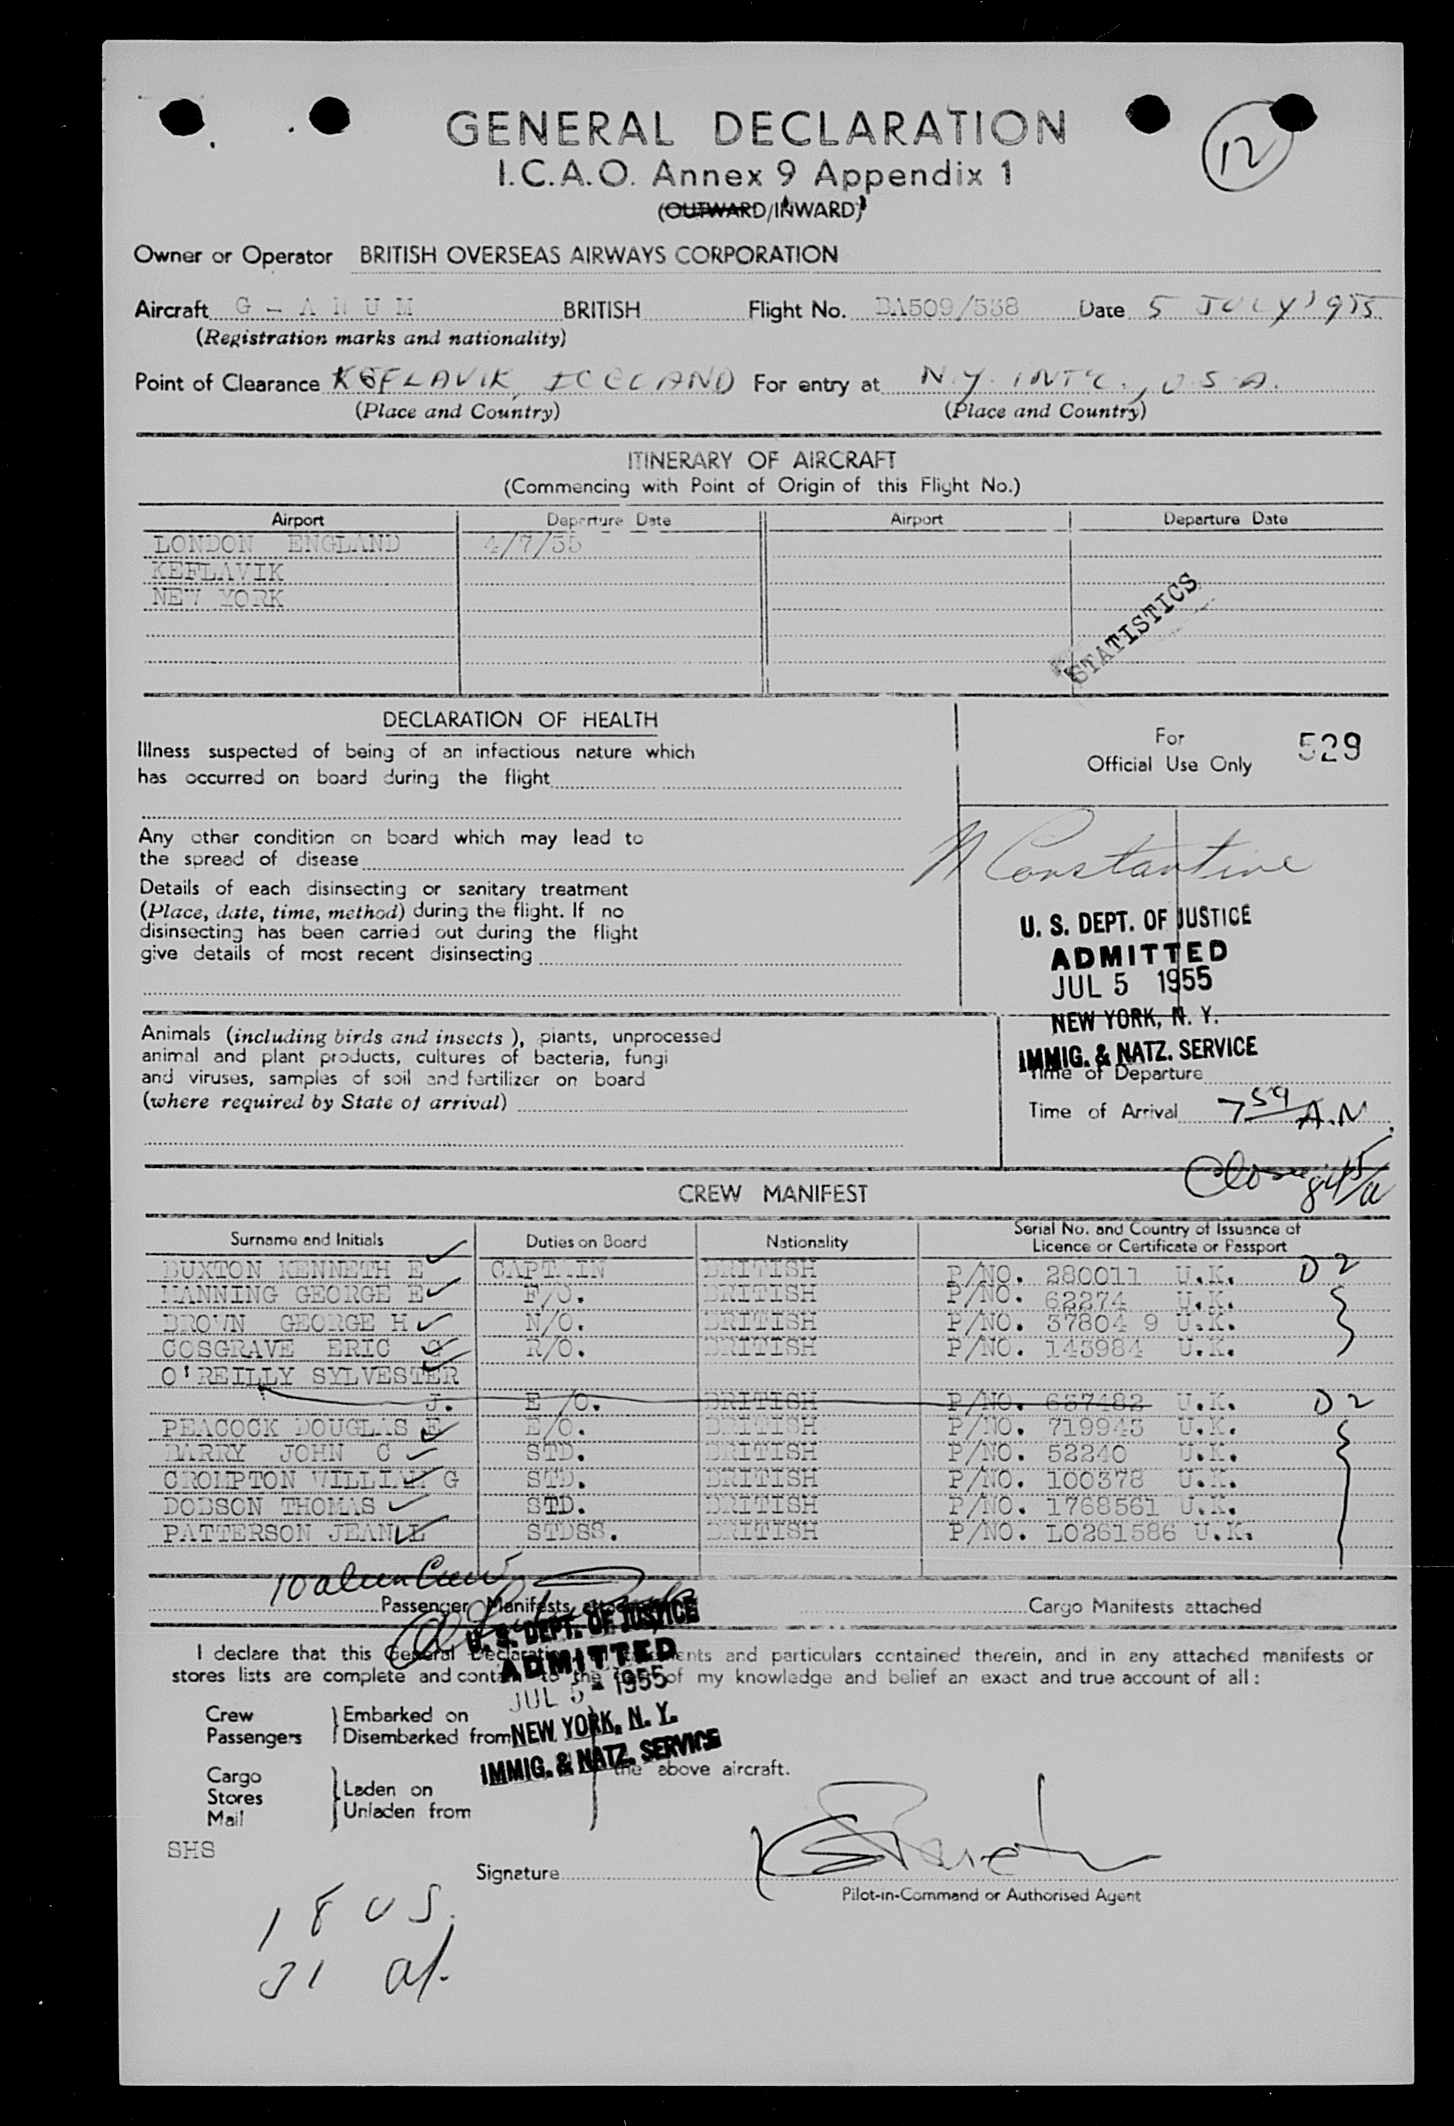 GENERAL DECLARATION
12
I.C.A.O. Annex 9 Appendix 1
(OUTWARD/INWARD)
Owner or Operator BRITISH OVERSEAS AIRWAYS CORPORATION
Aircraft G - A N U M BRITISH Flight No. BA509/538 Date 5 JULY 1955
(Registration marks and nationality)
Point of Clearance KEFLAVIK, ICELAND For entry at N.Y. INT'L., U.S.A.
(Place and Country) (Place and Country)
ITINERARY OF AIRCRAFT
(Commencing with Point of Origin of this Flight No.)
Airport Departure Date Airport Departure Date
LONDON ENGLAND 4/7/55
KEFLAVIK
NEW YORK
STATISTICS
DECLARATION OF HEALTH
Illness suspected of being of an infectious nature which
has occurred on board during the flight
For
Official Use Only
529
Any other condition on board which may lead to
the spread of disease
N Constantine
Details of each disinsecting or sanitary treatment
(Place, date, time, method) during the flight. If no
disinsecting has been carried out during the flight
give details of most recent disinsecting
U. S. DEPT. OF JUSTICE
ADMITTED
JUL 5 1955
NEW YORK, N. Y.
IMMIG. & NATZ. SERVICE
Animals (including birds and insects ), plants, unprocessed
animal and plant products, cultures of bacteria, fungi
and viruses, samples of soil and fertilizer on board
(where required by State of arrival)
Time of Departure
Time of Arrival 7 59 A.M.
CREW MANIFEST
Surname and Initials Duties on Board Nationality Serial No. and Country of Issuance of
Licence or Certificate or Passport
BUXTON KENNETH E CAPTAIN BRITISH P/NO. 280011 U.K. D 2
MANNING GEORGE E F/O. BRITISH P/NO. 62274 U.K.
BROWN GEORGE H N/O. BRITISH P/NO. 37804 9 U.K.
COSGRAVE ERIC G R/O. BRITISH P/NO. 143984 U.K.
O'REILLY SYLVESTER
J. E /O. BRITISH P/NO. 657482 U.K. D 2
PEACOCK DOUGLAS E E/O. BRITISH P/NO. 719943 U.K.
BARRY JOHN C STD. BRITISH P/NO. 52240 U.K.
CROMPTON WILLIAM G STD. BRITISH P/NO. 100378 U.K.
DOBSON THOMAS STD. BRITISH P/NO. 1768561 U.K.
PATTERSON JEAN L STDSS. BRITISH P/NO. LO261586 U.K.
10 alien Crew
Passenger Manifests attached Cargo Manifests attached
I declare that this General Declaration ments and particulars contained therein, and in any attached manifests or
stores lists are complete and contain to the of my knowledge and belief an exact and true account of all :
U. S. DEPT. OF JUSTICE
ADMITTED
JUL 5 - 1955
NEW YORK, N. Y.
IMMIG. & NATZ. SERVICE
Crew
Passengers
Embarked on
Disembarked from
the above aircraft.
Cargo
Stores
Mail
Laden on
Unladen from
SHS
Signature
Pilot-in-Command or Authorised Agent
18 US.
31 al.